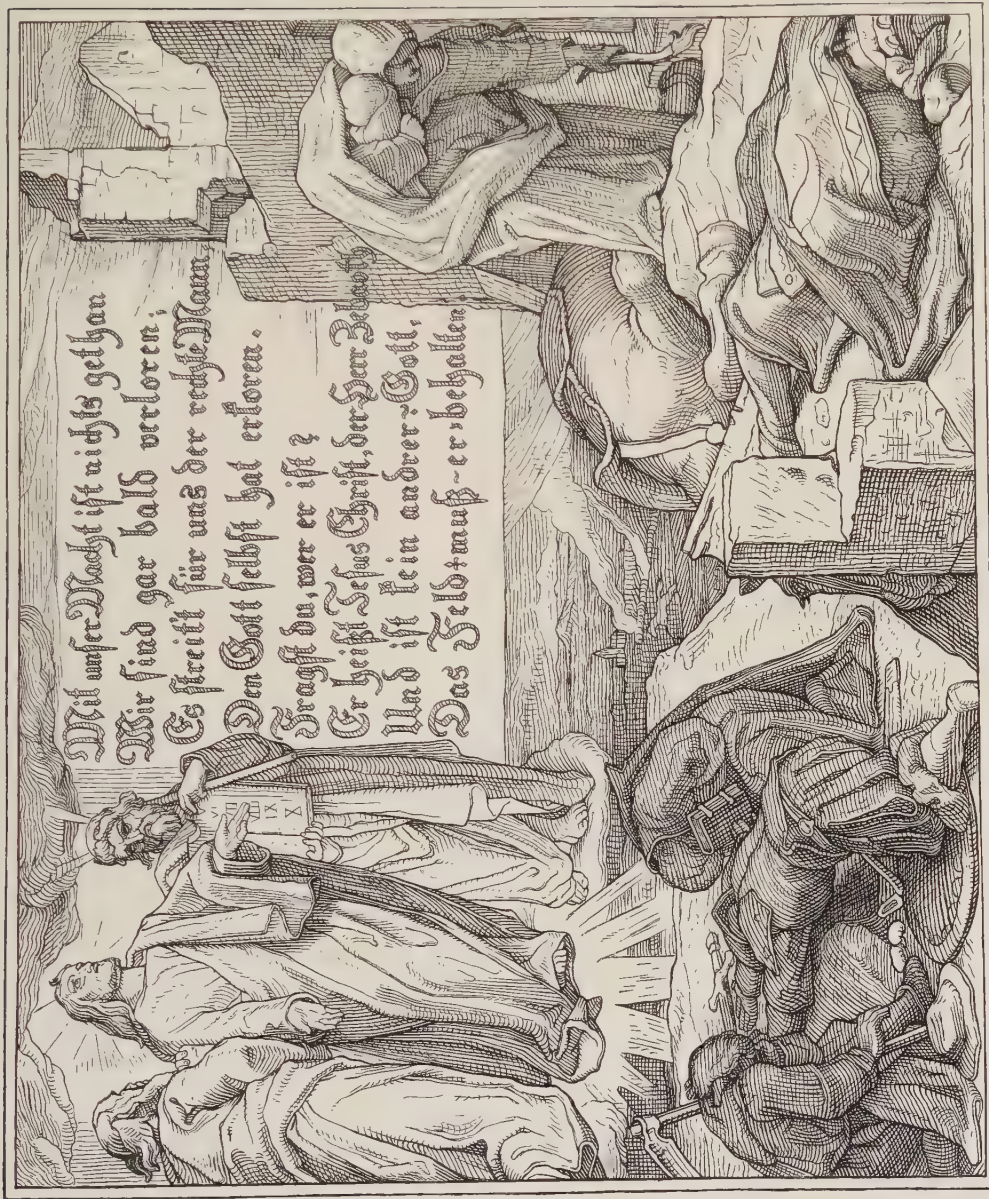 Mit unser Macht ist nichts gethan
Wir sind gar bald verloren;
Es streit't für uns der rechte Mann
Den Gott selbst hat erkoren.
Fragst du, wer er ist?
Er heißt Jesus Christ, der Herr Zebaoth
Und ist kein andrer Gott,
Das Feld muß er behalten
VI
IX
X